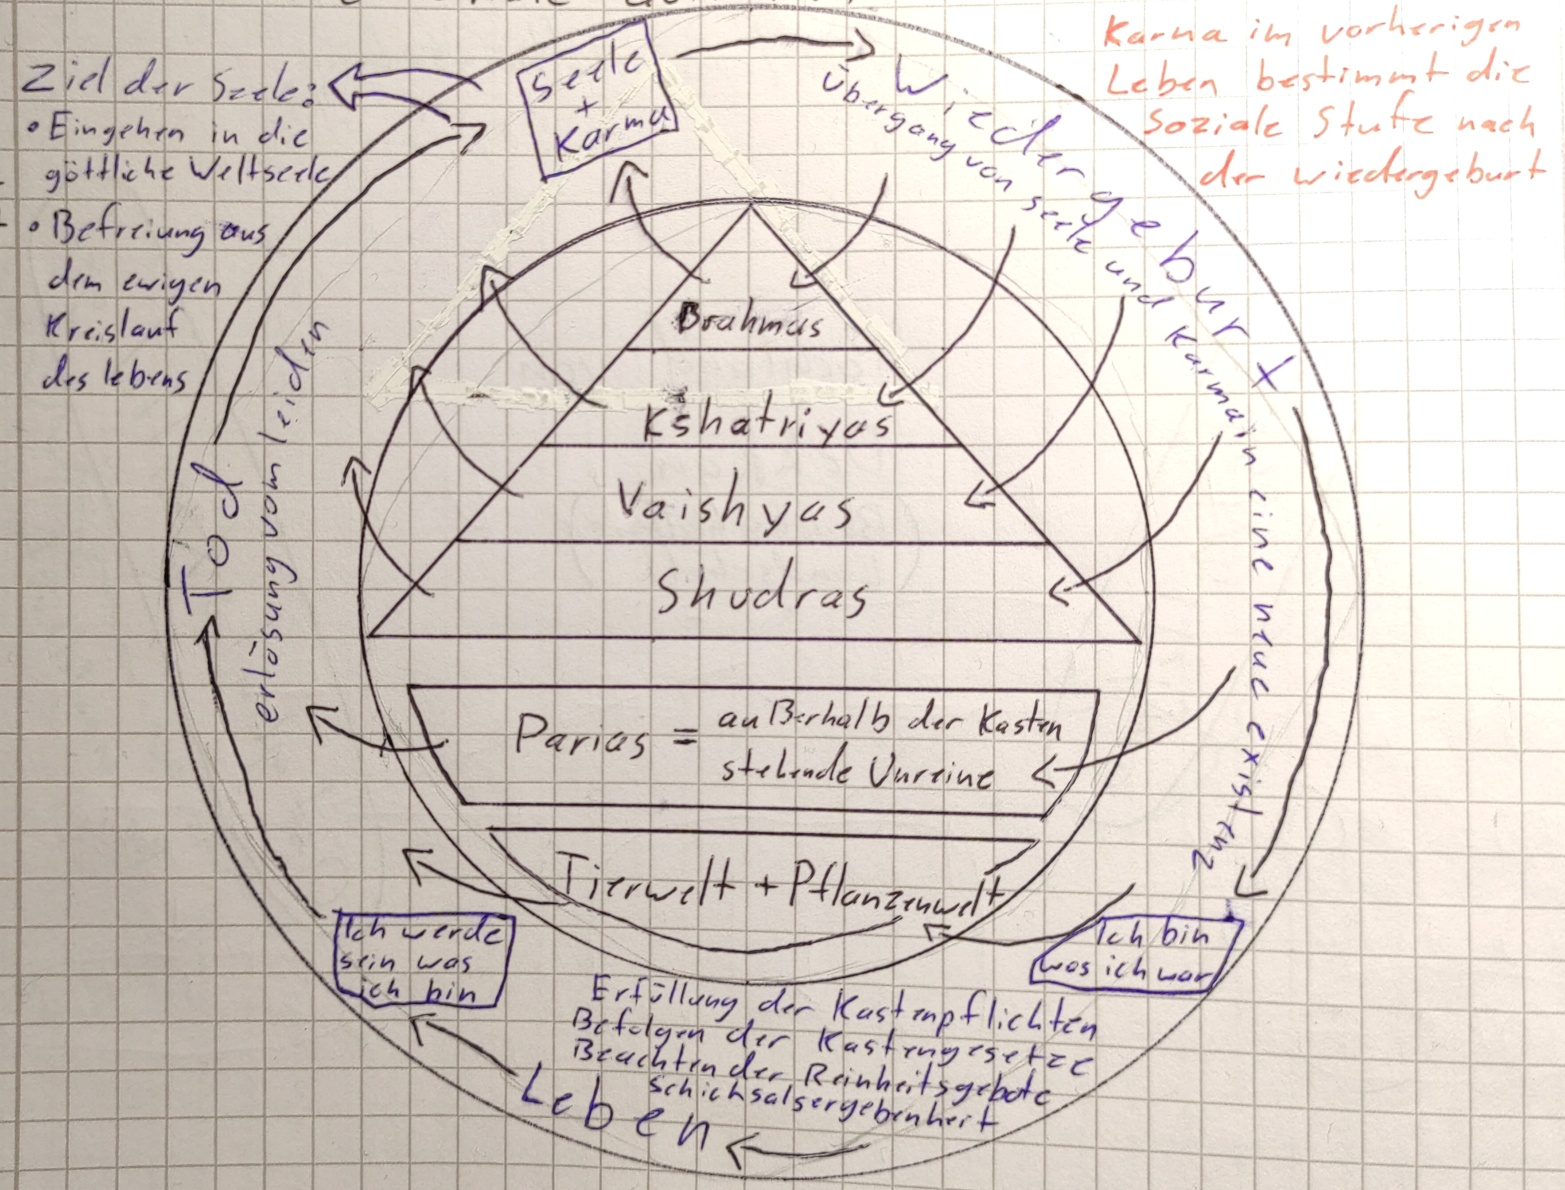 Karma im vorherigen
Leben bestimmt die
Soziale Stufe nach
der wiedergeburt
Ziel der Seele:
• Eingehen in die
göttliche Weltseele
• Befreiung aus
dem ewigen
Kreislauf
des lebens
Seele
+
Karma
Wiedergeburt
Übergang von seele und Karma in eine neue existenz
Tod
erlösung vom leiden
Brahmas
Kshatriyas
Vaishyas
Shudras
Parias = außerhalb der Kasten
stehende Unreine
Tierwelt + Pflanzenwelt
Ich werde
sein was
ich bin
Ich bin
was ich war
Erfüllung der Kastenpflichten
Befolgen der Kastengesetze
Beachten der Reinheitsgebote
Schichsalsergebenheit
Leben